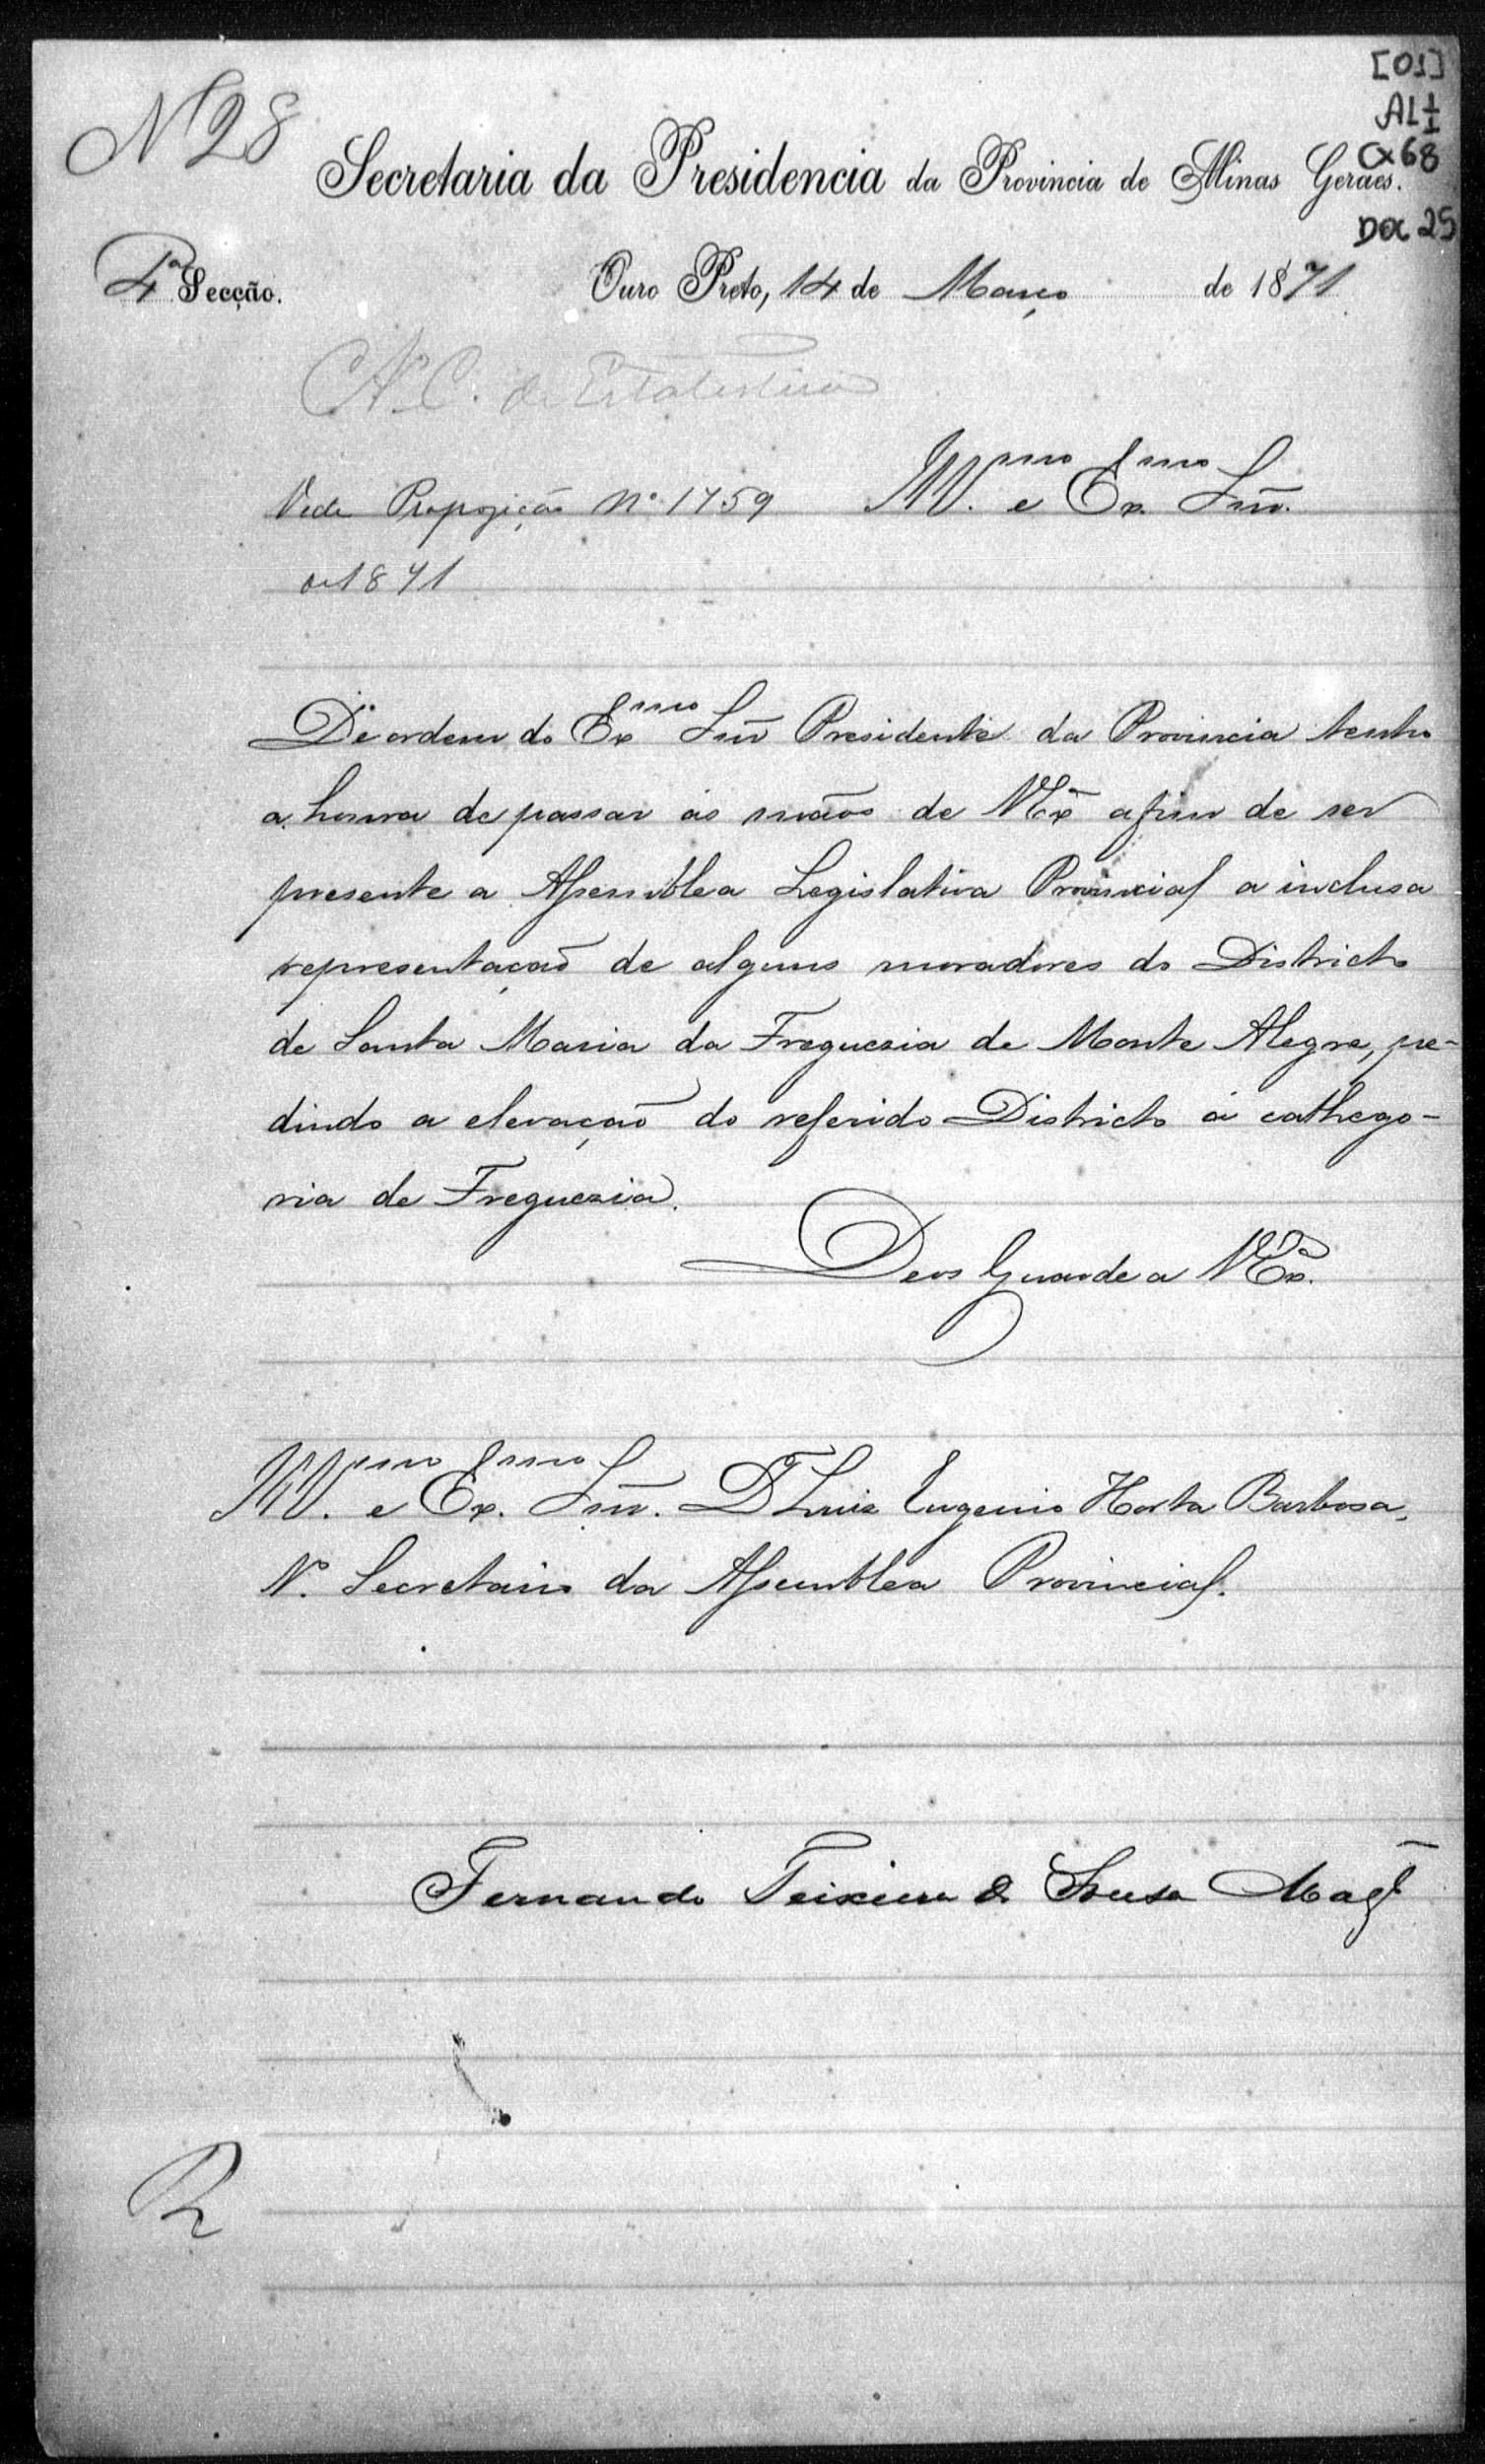 [01]
AL 1/1
Cx 68
Doc 25
Nº 28
Secretaria da Presidencia da Provincia de Minas Geraes.
4ª Secção.
Ouro Preto, 14 de Março de 1871
A' C. de Estatistica
Illmo e Exmo Snr.
Vide Proposição nº 1759
de 1871
De ordem do Exmo Snr Presidente da Provincia tenho
a honra de passar ás mãos de VEx afim de ser
presente a Assemblea Legislativa Provincial a inclusa
representação de alguns moradores do Districto
de Santa Maria da Freguezia de Monte Alegre, pe-
dindo a elevação do referido Districto á cathego-
ria de Freguezia.
Deos Guarde a VEx.
Illmo e Exmo Snr. Dr Luiz Eugenio Horta Barbosa,
Secretario da Assemblea Provincial.
Fernando Teixeira de Sousa Mags